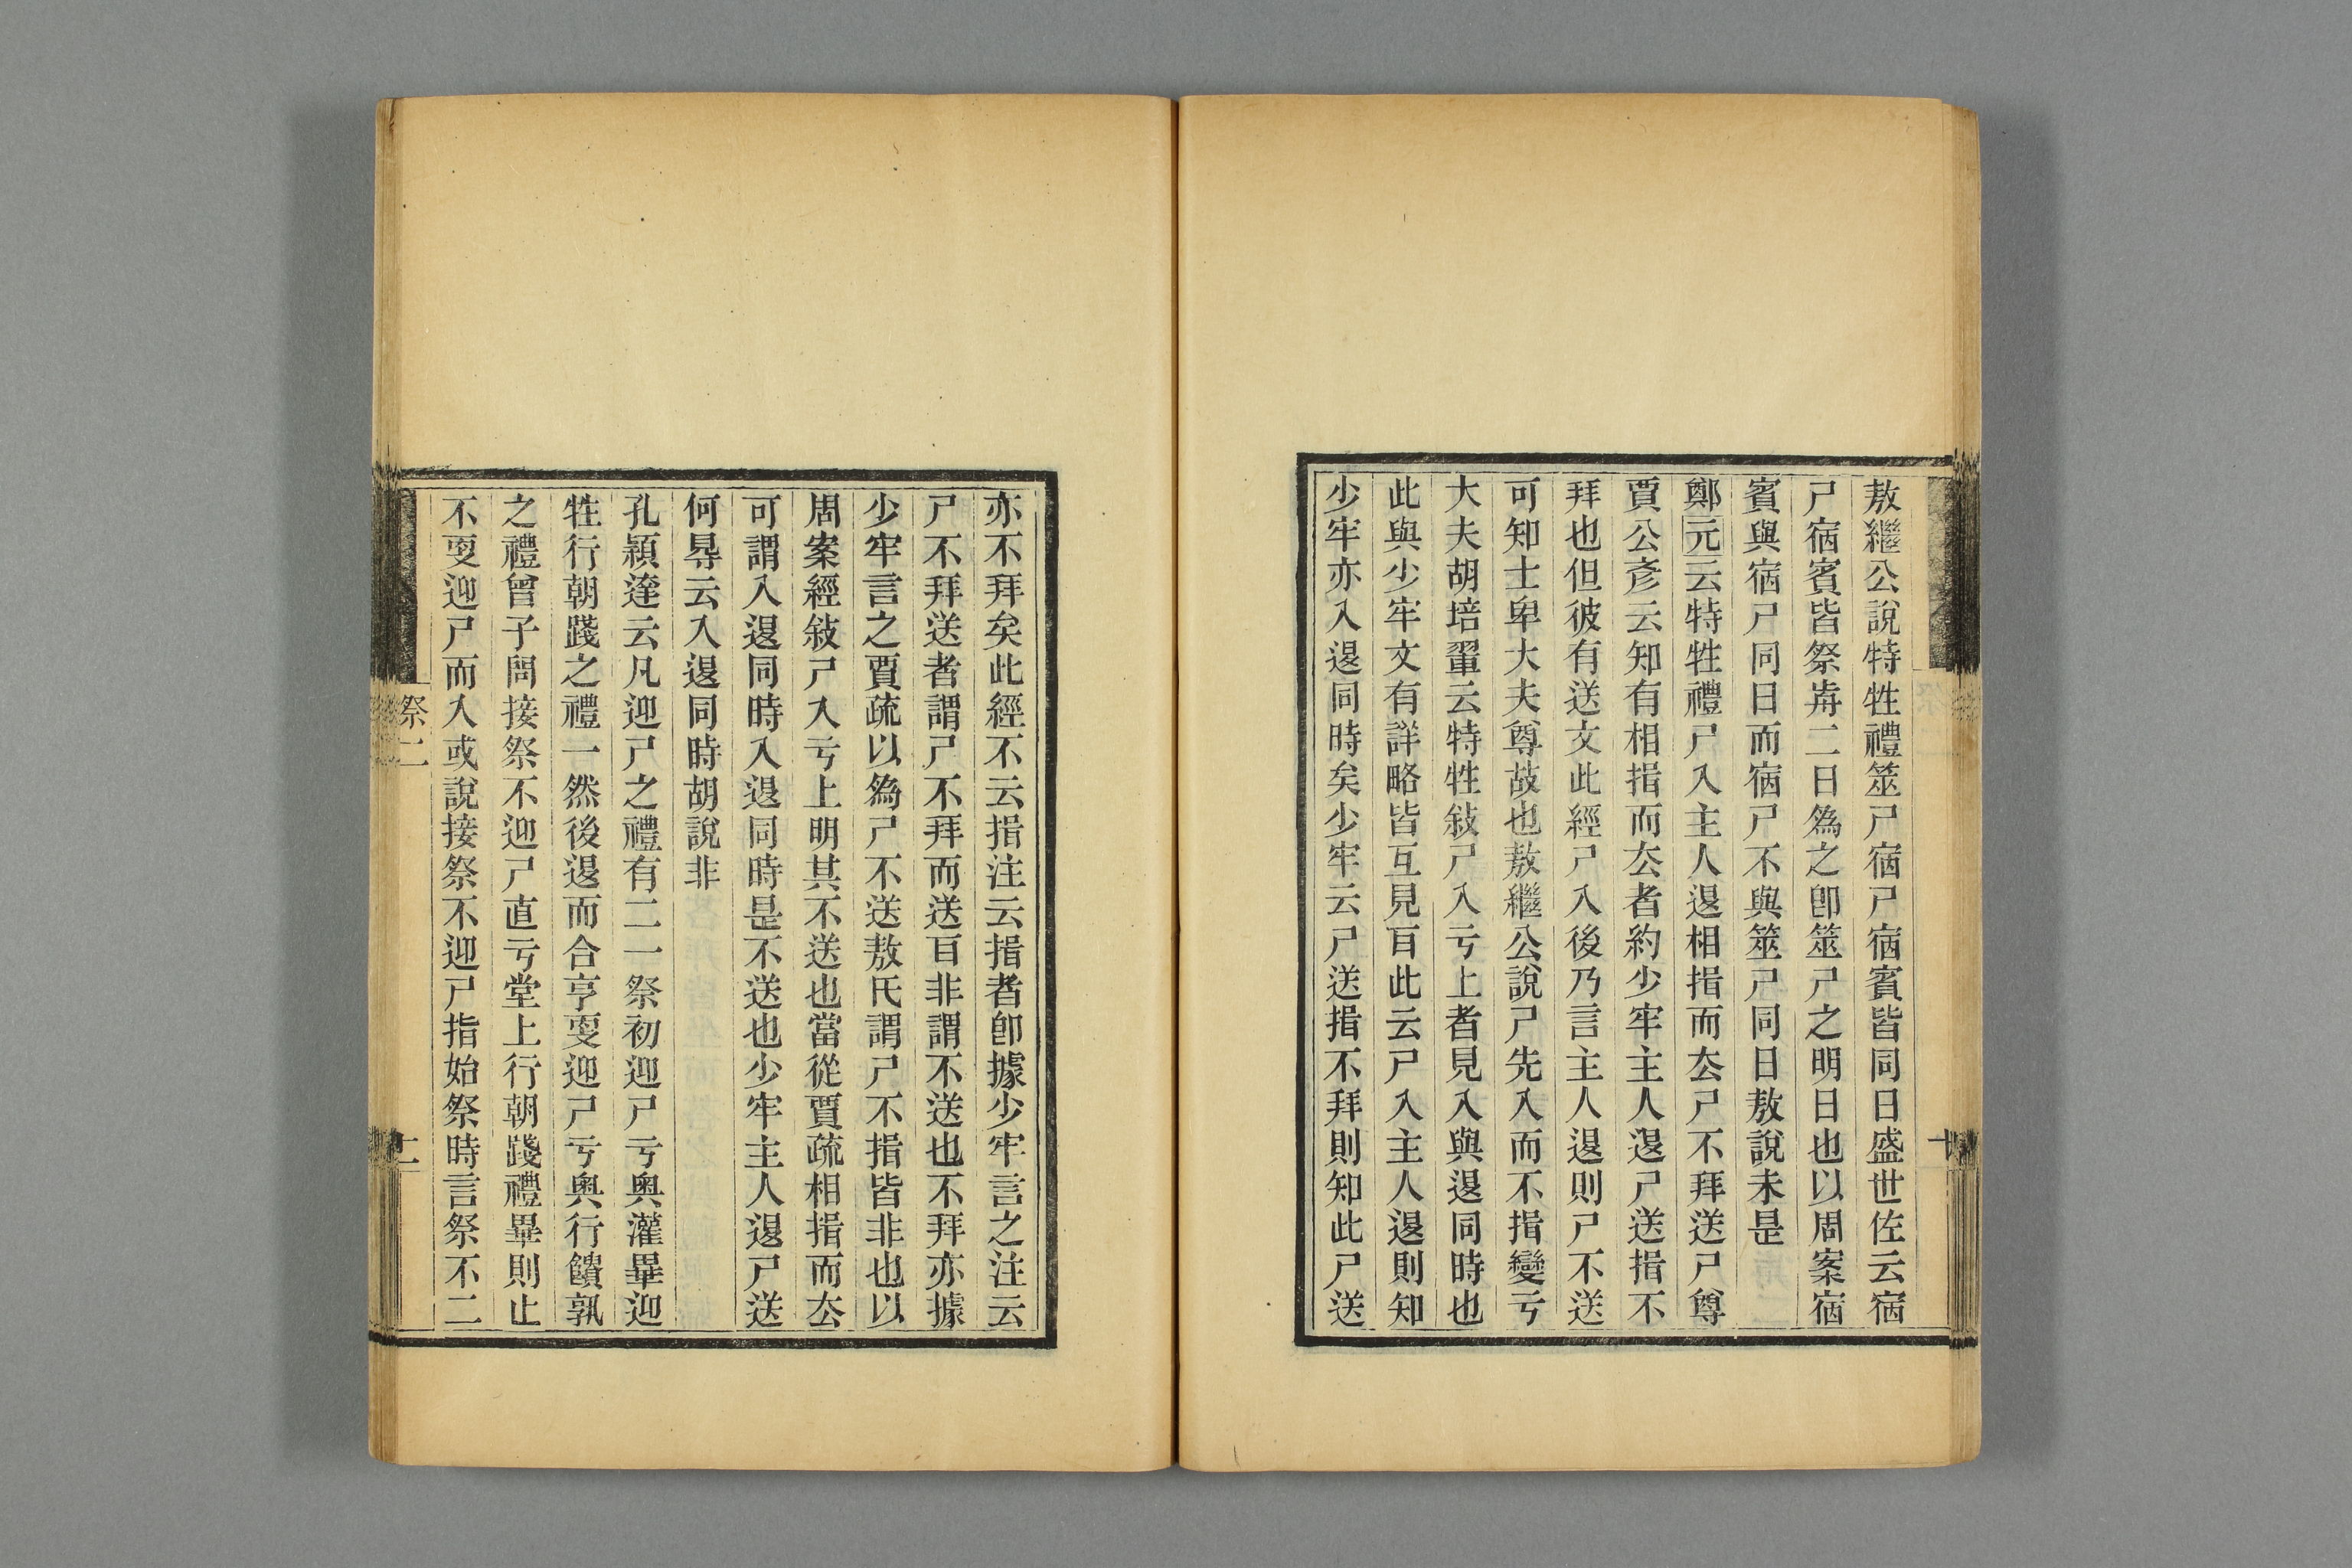 敖繼公說特牲禮筮尸宿尸宿賓皆同日盛世佐云宿
尸宿賓皆祭歬二日爲之卽筮尸之明日也以周案宿
賓與宿尸同日而宿尸不與筮尸同日敖說未是
鄭元云特牲禮尸入主人退相揖而厺尸不拜送尸尊
賈公彥云知有相揖而厺者約少牢主人退尸送揖不
拜也但彼有送文此經尸入後乃言主人退則尸不送
可知士卑大夫尊故也敖繼公說尸先入而不揖變亏
大夫胡培翬云特牲敍尸入亏上者見入與退同時也
此與少牢文有詳略皆互見百此云尸入主人退則知
少牢亦入退同時矣少牢云尸送揖不拜則知此尸送
十
亦不拜矣此經不云揖注云揖者卽據少牢言之注云
尸不拜送者謂尸不拜而送百非謂不送也不拜亦據
少牢言之賈疏以爲尸不送敖氏謂尸不揖皆非也以
周案經敍尸入亏上明其不送也當從賈疏相揖而厺
可謂入退同時入退同時是不送也少牢主人退尸送
何㝵云入退同時胡說非
孔穎達云凡迎尸之禮有二一祭初迎尸亏奧灌畢迎
牲行朝踐之禮一然後退而合亨㪅迎尸亏奧行饋孰
之禮曾子問接祭不迎尸直亏堂上行朝踐禮畢則止
不㪅迎尸而入或說接祭不迎尸指始祭時言祭不二
祭二
十一